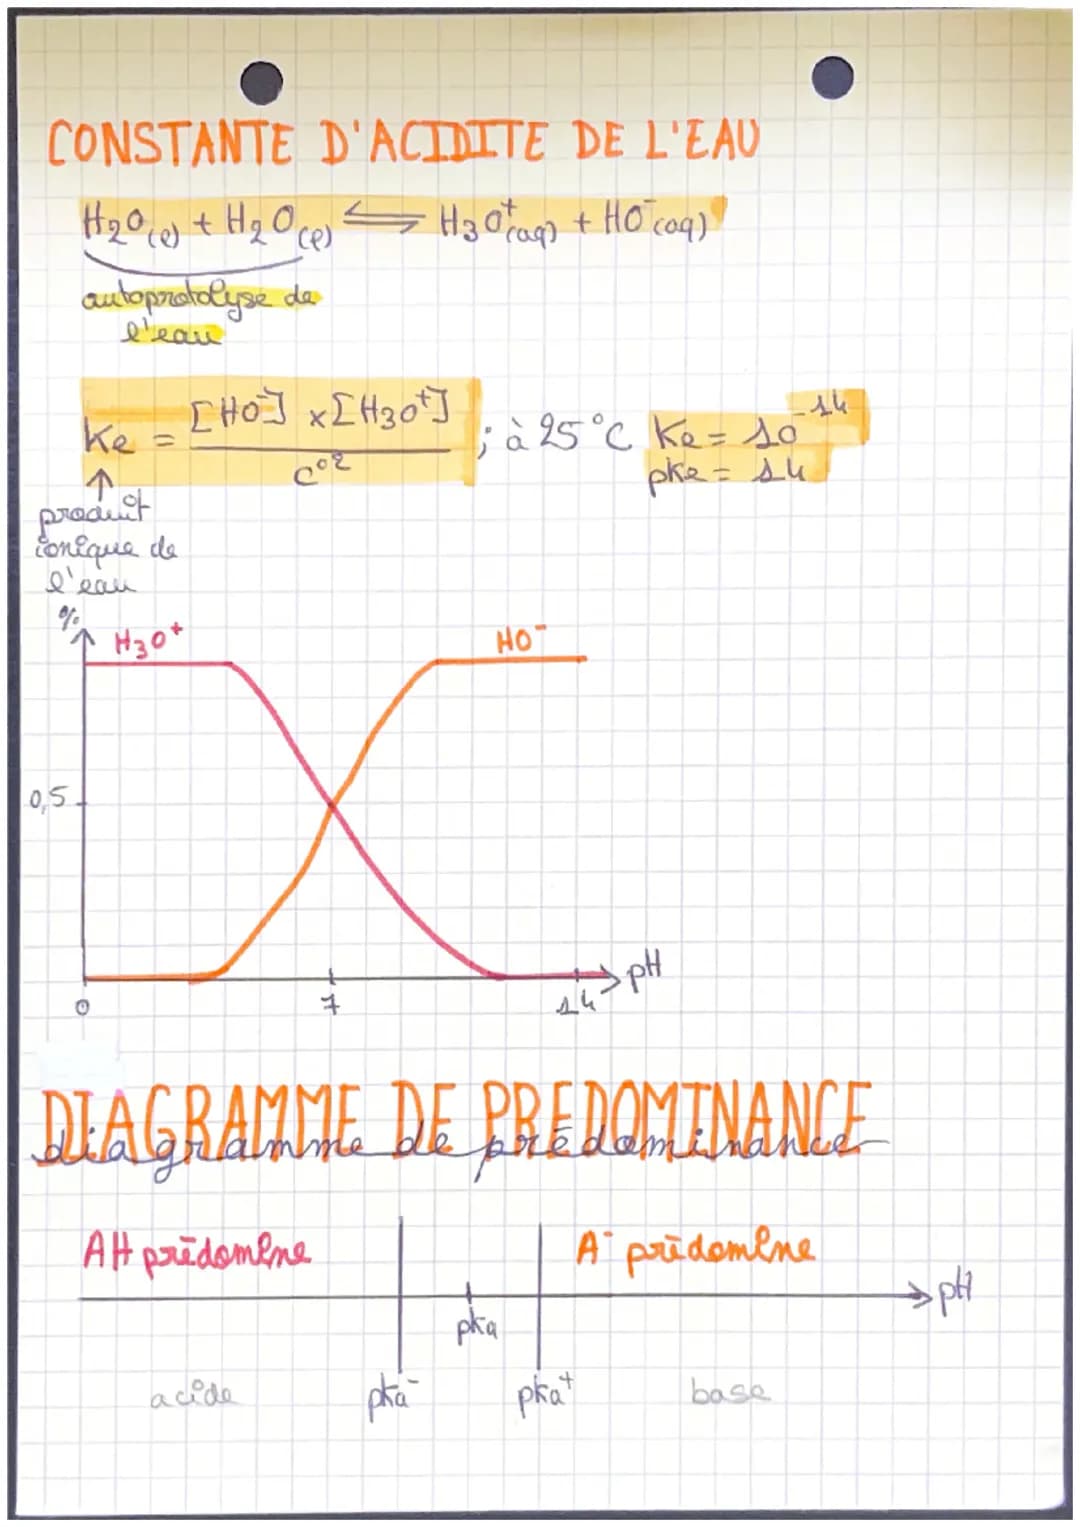 CONSTANTE D'ACIDITE DE L'EAU
H2O(l) + H2O(l) ⇌ H3O+(aq) + HO-(aq)
autoprotolyse de
l'eau
Ke = [HO-] x [H3O+] / c°2 ; à 25°C Ke = 10^-14
pKe = 14
↑
produit
ionique de
l'eau
%
H3O+ HO-
0,5
0 7 14 pH
DIAGRAMME DE PREDOMINANCE
diagramme de prédominance
AH prédomine A- prédomine
pka pH
acide pka- pka+ base